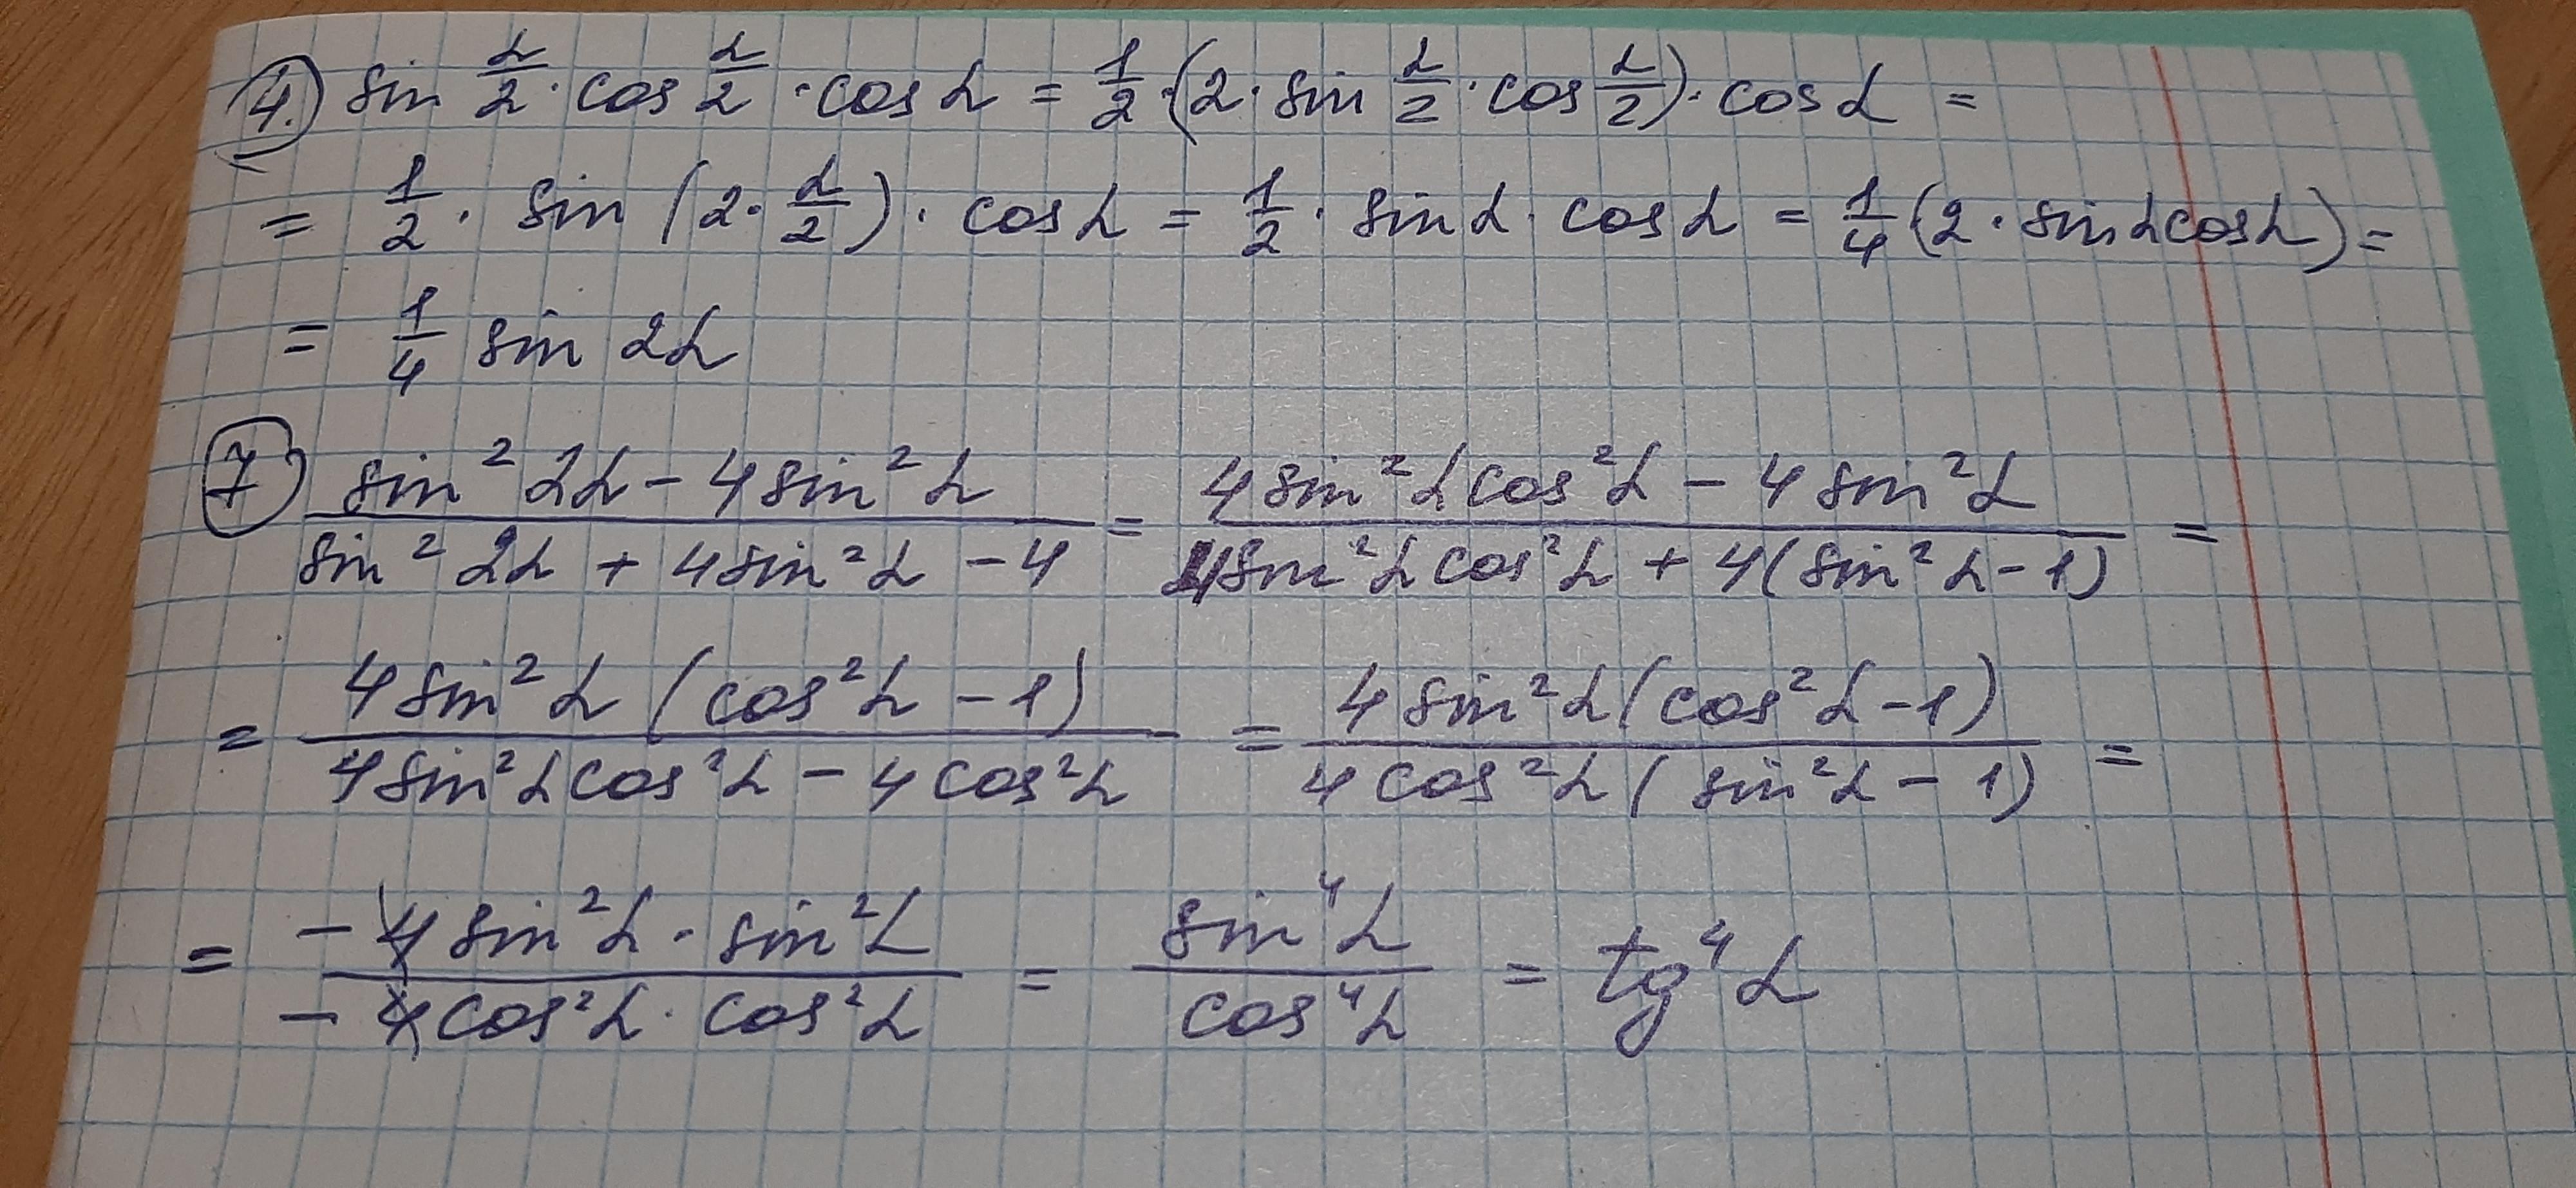 4. sin α/2 · cos α/2 · cos α = 1/2 · (2 · sin α/2 · cos α/2) · cos α =
= 1/2 · sin (2 · α/2) · cos α = 1/2 · sin α · cos α = 1/4 (2 · sin α cos α) =
= 1/4 sin 2α
7 (sin² 2α - 4 sin² α)/(sin² 2α + 4 sin² α - 4) = (4 sin² α cos² α - 4 sin² α)/(4 sin² α cos² α + 4 (sin² α - 1)) =
= (4 sin² α (cos² α - 1))/(4 sin² α cos² α - 4 cos² α) = (4 sin² α (cos² α - 1))/(4 cos² α (sin² α - 1)) =
= (-4 sin² α · sin² α)/(-4 cos² α · cos² α) = sin⁴ α/cos⁴ α = tg⁴ α